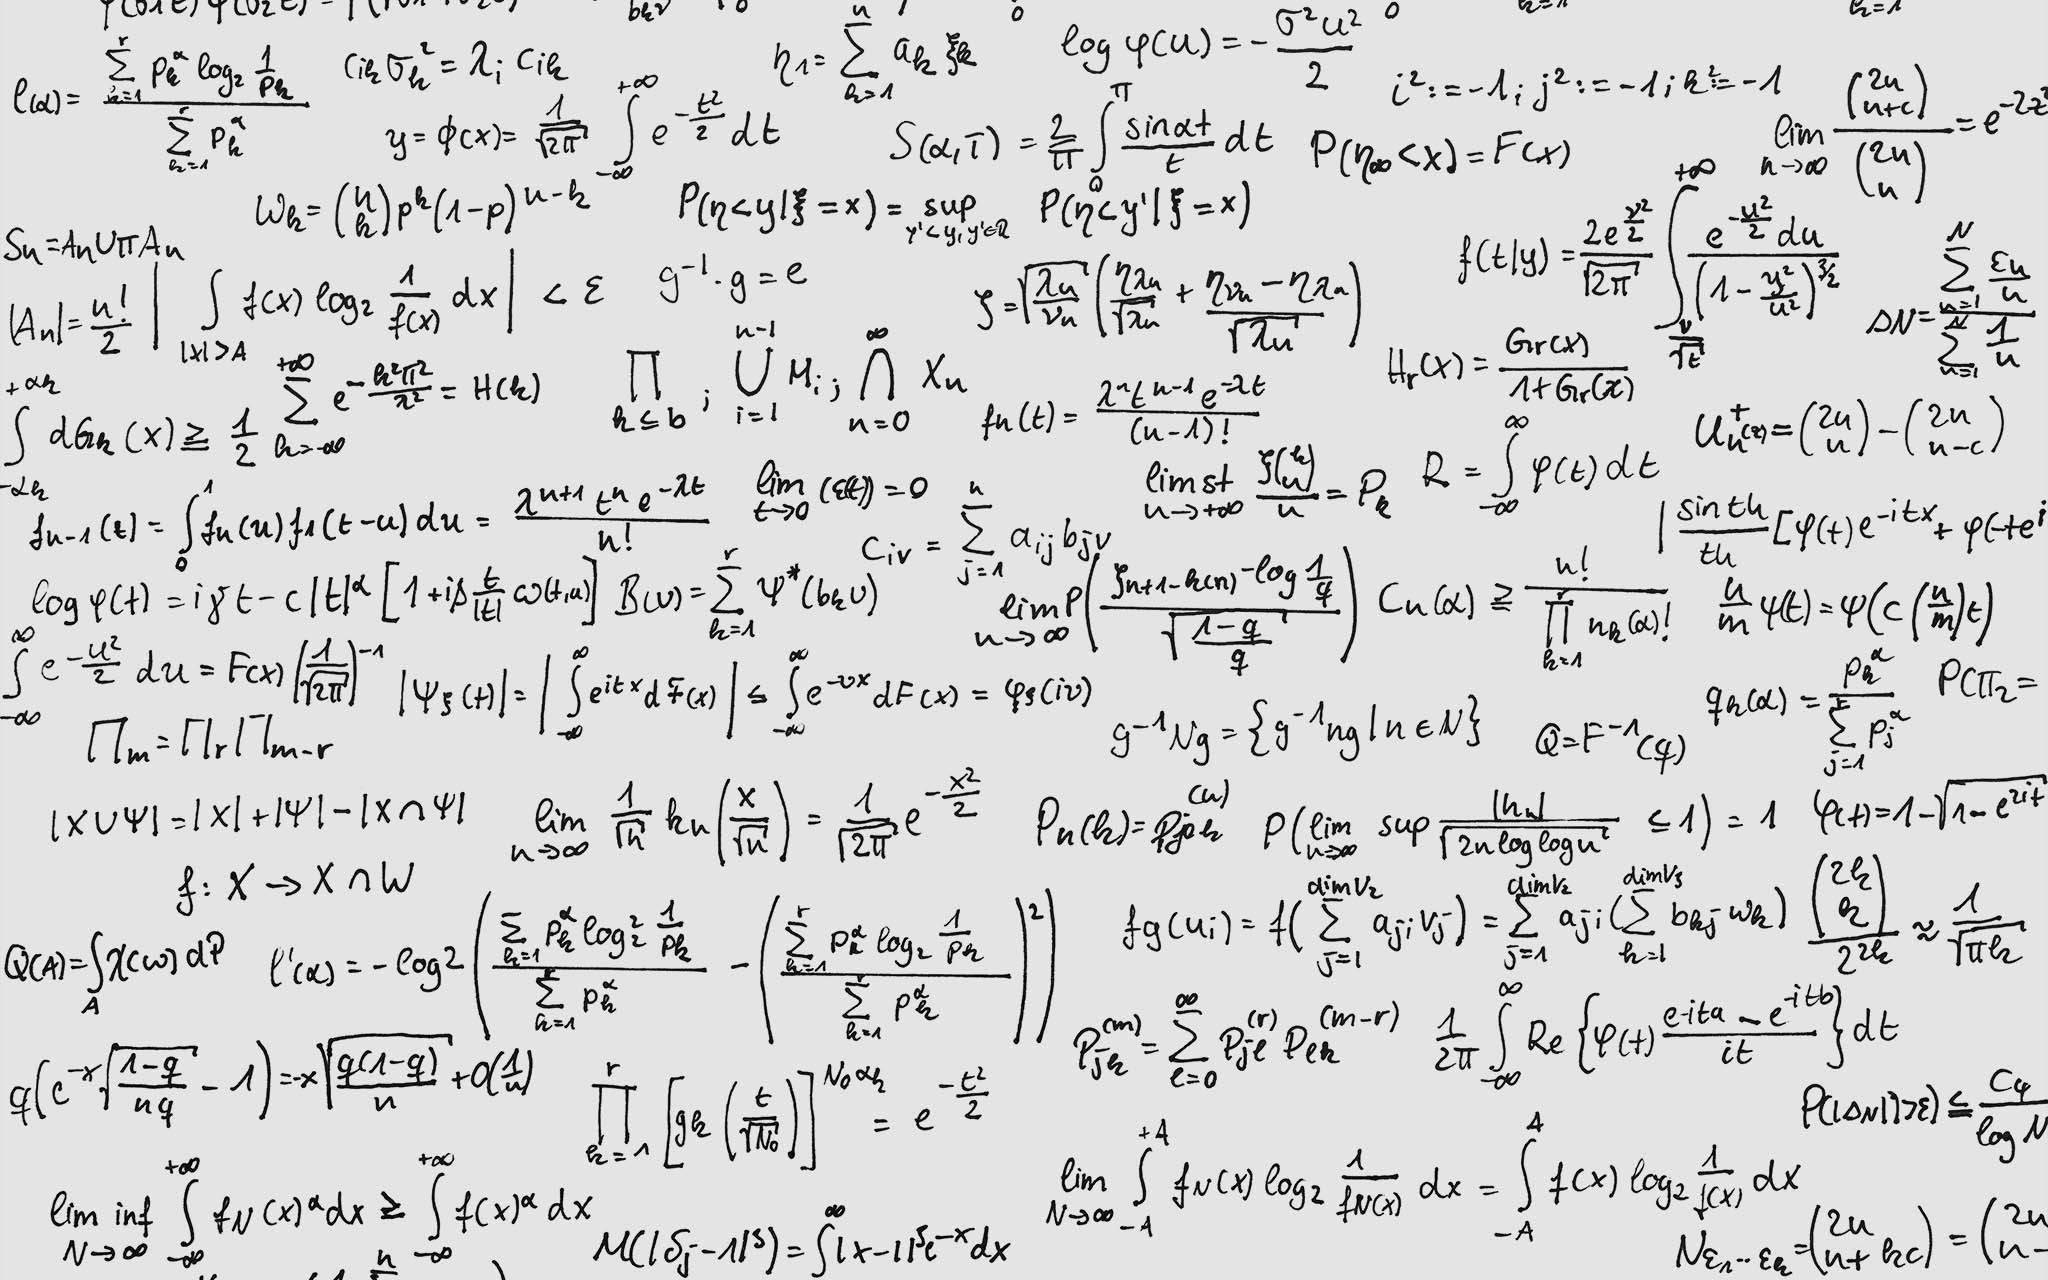 l(α) = \frac{\sum_{k=1}^{r} p_k^α log_2 \frac{1}{p_k}}{\sum_{k=1}^{r} p_k^α}
c_{ik} σ_k^2 = λ_i c_{ik}
η_1 = \sum_{k=1}^{n} a_k ξ_k
log φ(u) = -\frac{σ^2 u^2}{2}
i^2 := -1; j^2 := -1; k^2 = -1
\lim_{n→∞} \frac{\binom{2n}{n+c}}{\binom{2n}{n}} = e^{-2z^2}
y = ϕ(x) = \frac{1}{\sqrt{2π}} \int_{-∞}^{+∞} e^{-\frac{t^2}{2}} dt
S(α,T) = \frac{2}{π} \int_0^π \frac{sin αt}{t} dt
P(η_∞ < x) = F(x)
W_k = \binom{n}{k} p^k (1-p)^{n-k}
P(η < y | ξ = x) = \sup_{y' < y, y' ∈ R} P(η < y' | ξ = x)
S_n = A_n ∪ π A_n
f(t|y) = \frac{2e^{\frac{v^2}{2}}}{\sqrt{2π}} \int_{\frac{v}{\sqrt{t}}}^{+∞} \frac{e^{-\frac{u^2}{2}} du}{(1 - \frac{y^2}{u^2})^{3/2}}
|A_n| = \frac{n!}{2}
| \int_{|x|>A} f(x) log_2 \frac{1}{f(x)} dx | < ε
g^{-1} · g = e
ζ = \sqrt{\frac{λ_n}{ν_n}} ( \frac{η_{λ_n}}{\sqrt{λ_n}} + \frac{η_{ν_n} - η_{λ_n}}{\sqrt{λ_n}} )
ΔN = \frac{\sum_{n=1}^{N} \frac{ε_n}{n}}{\sum_{n=1}^{N} \frac{1}{n}}
H_r(x) = \frac{G_r(x)}{1 + G_r(x)}
\int_{-αk}^{+αk} dG_k(x) ≧ \frac{1}{2}
\sum_{k=-∞}^{+∞} e^{-\frac{k^2π^2}{λ^2}} = H(k)
\prod_{k≤b} ; \bigcup_{i=1}^{n-1} M_i ; \bigcap_{n=0}^{∞} X_n
f_n(t) = \frac{λ^n t^{n-1} e^{-λt}}{(n-1)!}
U_n^+(z) = \binom{2n}{n} - \binom{2n}{n-c}
f_{n-1}(t) = \int_0^1 f_n(u) f_1(t-u) du = \frac{λ^{n+1} t^n e^{-λt}}{n!}
\lim_{t→0} (ε(t)) = 0
lim st_{n→+∞} \frac{ξ\binom{k}{n}}{n} = P_k
R = \int_{-∞}^{∞} φ(t) dt
c_{iv} = \sum_{j=1}^{n} a_{ij} b_{jv}
| \frac{sin th}{th} [φ(t) e^{-itx} + φ(-t e^i
log φ(t) = iγt - c|t|^α [1 + iβ \frac{t}{|t|} ω(t,α)]
B(v) = \sum_{k=1}^{r} Ψ^*(b_k v)
\lim_{n→∞} P( \frac{ξ_{n+1-k(n)} - log \frac{1}{q}}{\sqrt{\frac{1-q}{q}}} )
C_n(α) ≧ \frac{n!}{\prod_{k=1}^{r} n_k(α)!}
\frac{n}{m} ψ(t) = ψ(c(\frac{n}{m})t)
\int_{-∞}^{∞} e^{-\frac{u^2}{2}} du = F(x) (\frac{1}{\sqrt{2π}})^{-1}
|Ψ_ξ(t)| = | \int_{-∞}^{∞} e^{itx} dF(x) | ≤ \int_{-∞}^{∞} e^{-vx} dF(x) = φ_ξ(iv)
q_k(α) = \frac{p_k^α}{\sum_{j=1}^{r} p_j^α}
P(Π_2 =
Π_m = Π_r Π_{m-r}
g^{-1}Ng = {g^{-1}ng | n ∈ N}
Q = F^{-1}(φ)
|X ∪ Ψ| = |X| + |Ψ| - |X ∩ Ψ|
\lim_{n→∞} \frac{1}{\sqrt{n}} k_n(\frac{x}{\sqrt{n}}) = \frac{1}{\sqrt{2π}} e^{-\frac{x^2}{2}}
P_n(k) = p_{jok}^{(n)}
P(\lim_{n→∞} sup \frac{|h_n|}{\sqrt{2n log log n}} ≤ 1) = 1
φ(t) = 1 - \sqrt{1 - e^{2it}}
f: X → X ∩ W
Q(A) = \int_A χ(ω) dP
l'(α) = -log 2 ( \frac{\sum_{k=1}^{r} p_k^α log_2^2 \frac{1}{p_k}}{\sum_{k=1}^{r} p_k^α} - ( \frac{\sum_{k=1}^{r} p_k^α log_2 \frac{1}{p_k}}{\sum_{k=1}^{r} p_k^α} )^2 )
fg(u_i) = f(\sum_{j=1}^{dim V_2} a_{ji} v_j) = \sum_{j=1}^{dim V_2} a_{ji} (\sum_{k=1}^{dim V_3} b_{kj} w_k)
\frac{\binom{2k}{k}}{2^{2k}} ≈ \frac{1}{\sqrt{πk}}
P_{jk}^{(m)} = \sum_{l=0}^{∞} P_{jl}^{(r)} P_{lk}^{(m-r)}
\frac{1}{2π} \int_{-∞}^{∞} Re { φ(t) \frac{e^{-ita} - e^{-itb}}{it} } dt
q( e^{-x\sqrt{\frac{1-q}{nq}}} - 1 ) = -x \sqrt{\frac{q(1-q)}{n}} + O(\frac{1}{n})
\prod_{k=1}^{r} [ g_k (\frac{t}{\sqrt{N_0}}) ]^{N_0 α_k} = e^{-\frac{t^2}{2}}
P(|ΔN|>ε) ≦ \frac{Cφ}{log N
lim inf_{N→∞} \int_{-∞}^{+∞} f_N(x)^α dx ≥ \int_{-∞}^{+∞} f(x)^α dx
\lim_{N→∞} \int_{-A}^{+A} f_N(x) log_2 \frac{1}{f_N(x)} dx = \int_{-A}^{A} f(x) log_2 \frac{1}{f(x)} dx
M(|δ_j - 1|^3) = \int^{∞} |x-1|^3 e^{-x} dx
N_{ε_1 … ε_k} = \binom{2n}{n+kc} = \binom{2n}{n-